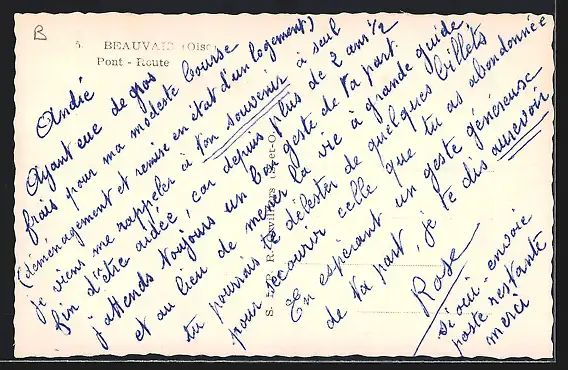 B
5. BEAUVAIS (Oise)
Pont - Route
André
Ayant eue de gos
frais pour ma modeste bourse
(déménagement et remise en état d'un logement)
je viens me rappeler à ton souvenir à seul
fin d'être aidée, car depuis plus de 2 ans 1/2
j'attends toujours un bon geste de ta part.
et au lieu de mener la vie à grande guide
tu pourrais te délester de quelques billets
pour secourir celle que tu as abandonnée
En espérant un geste généreuse
de ta part, je te dis aurevoir
Rose
si oui - envoie
poste restante
merci